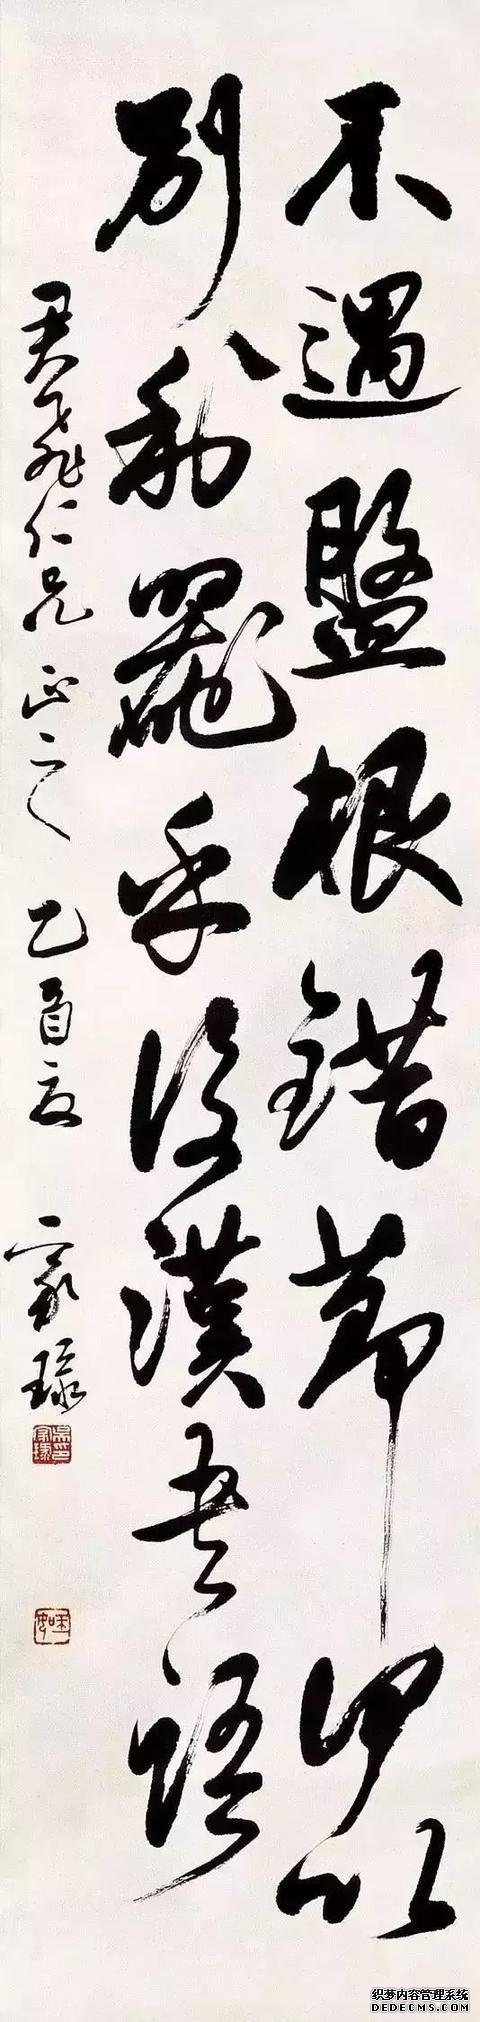 不遇盤根錯節何以
別利器乎後漢書語
君飛仁兄正之 乙酉夏 家琭
织梦内容管理系统
DEDECMS.COM